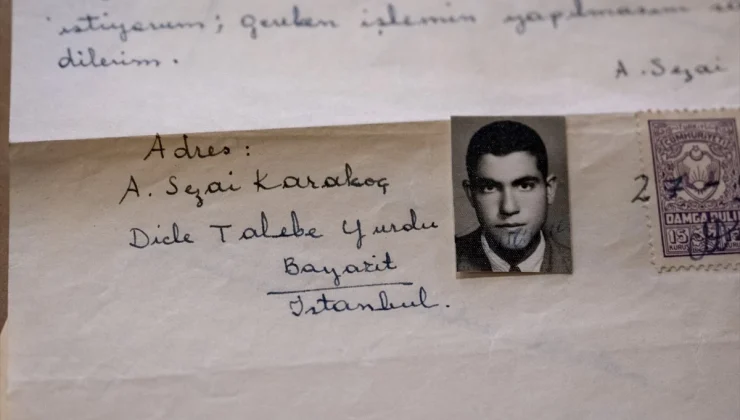 istiyorum; gereken işlemin yapılmasını
dilerim.
A. Sezai
Adres:
A. Sezai Karakoç
Dicle Talebe Yurdu
Bayazit
İstanbul.
27
CUMHURİYETİ
DAMGA PULU
15 KURUŞ